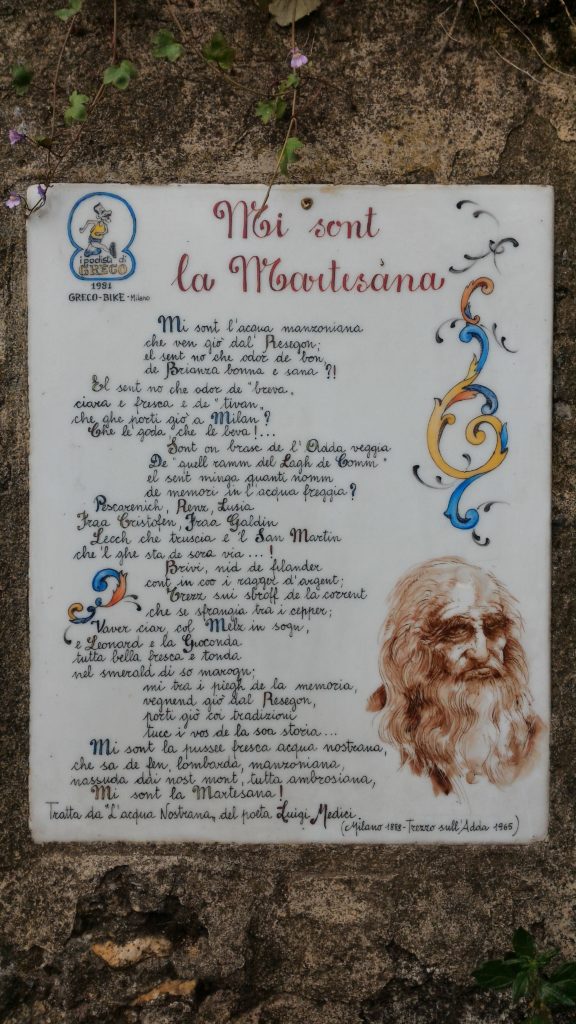 i podisti di
GRECO
1981
GRECO-BIKE - Milano
Mi sont
la Martesàna
Mi sont l'acqua manzoniana
che ven giò dal' Resegon;
el sent no che odor de bon,
de Brianza bonna e sana ?!
El sent no che odor de "breva„
ciara e fresca e de "tivan„
che ghe porti giò a Milan ?
Che le goda che le beva!...
Sont on brasc de l'Adda veggia
De "quell ramm del Lagh de Comm"
el sent minga quanti nomm
de memori in l'acqua freggia?
Pescarenich, Renz, Lusia
Fraa Cristofen, Fraa Galdin
Lecch che truscia e 'l San Martin
che 'l ghe sta de sora via...!
Brivi, nid de filander
cont in coo i raggei d'argent;
Trezz sui sbroff de la corrent
che se sfrangia tra i cepper;
Vaver ciar, col Melz in sogn,
e Leonard e la Gioconda
tutta bella fresca e tonda
nel smerald di so marogn;
mi tra i piegh de la memoria,
vegnend giò dal Resegon,
porti giò coi tradizioni
tucc i vos de la soa storia...
Mi sont la pussee fresca acqua nostrana,
che sa de fen, lombarda, manzoniana,
nassuda dai nost mont, tutta ambrosiana,
Mi sont la Martesana!
Tratta da "L'acqua Nostrana„ del poeta Luigi Medici
(Milano 1888-Trezzo sull'Adda 1965)